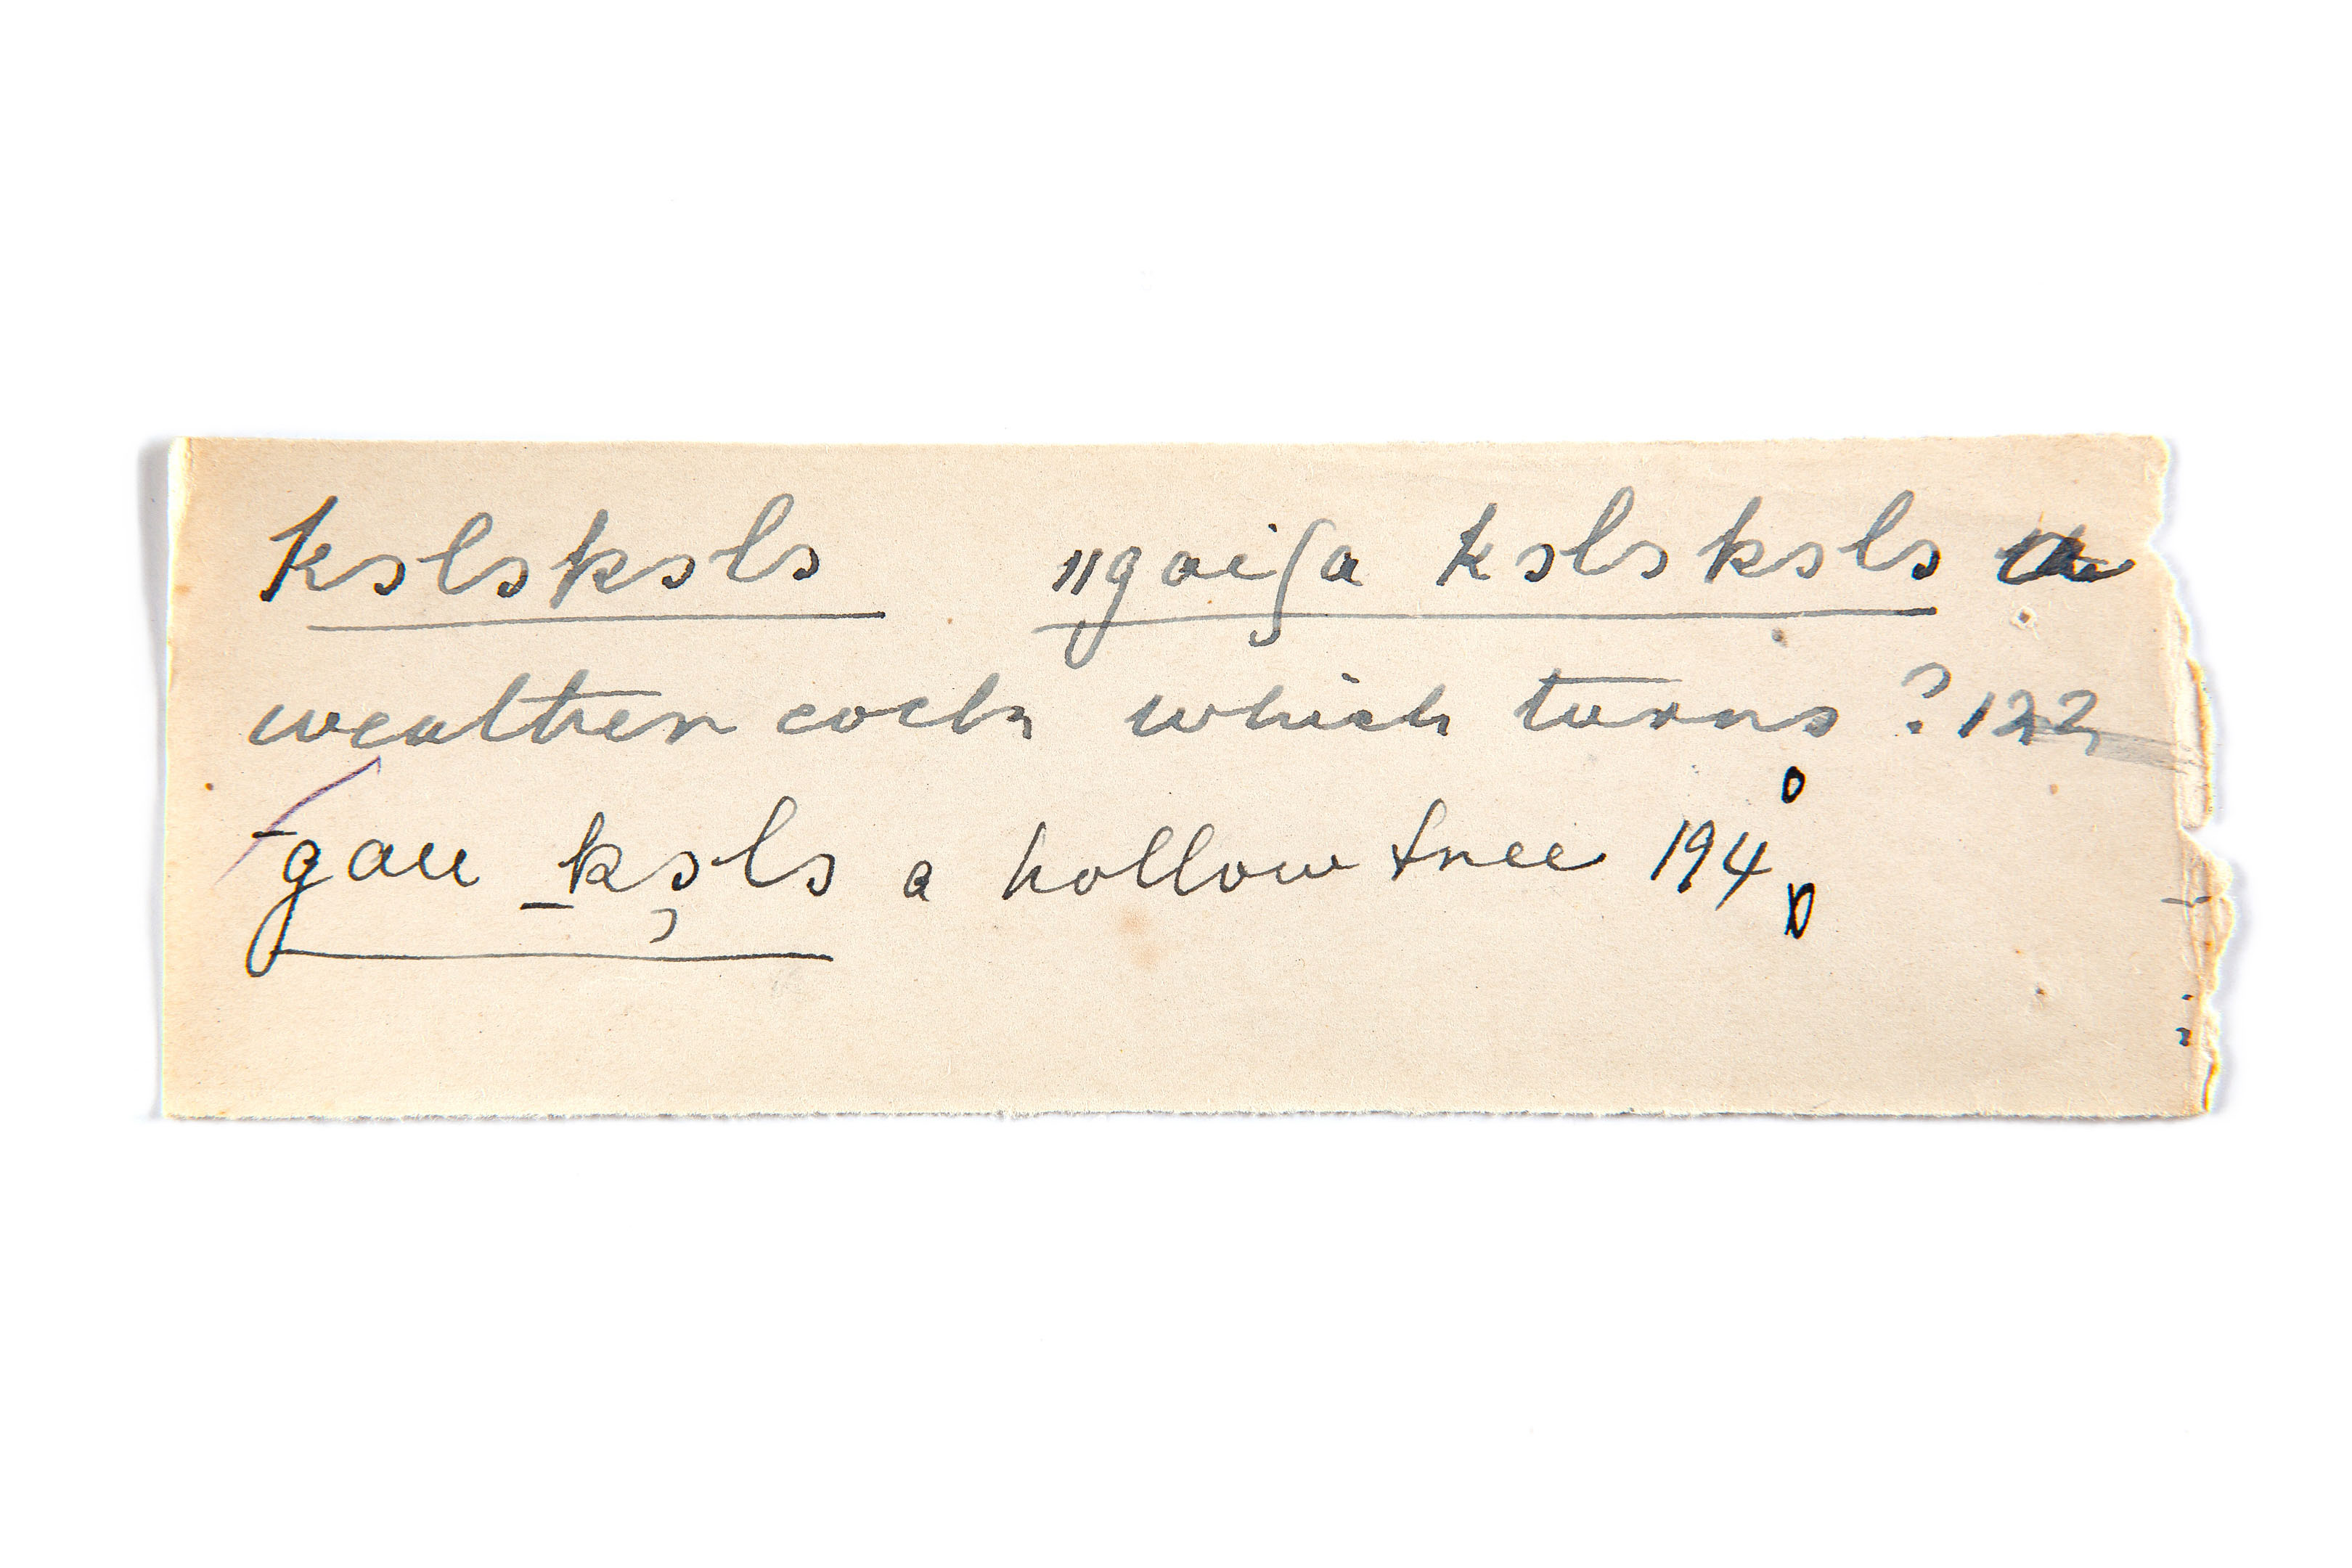 kslsksls ‖gaiʃa kslsksls a
weather cock which turns ? 122
gau ksls a hollow tree 194